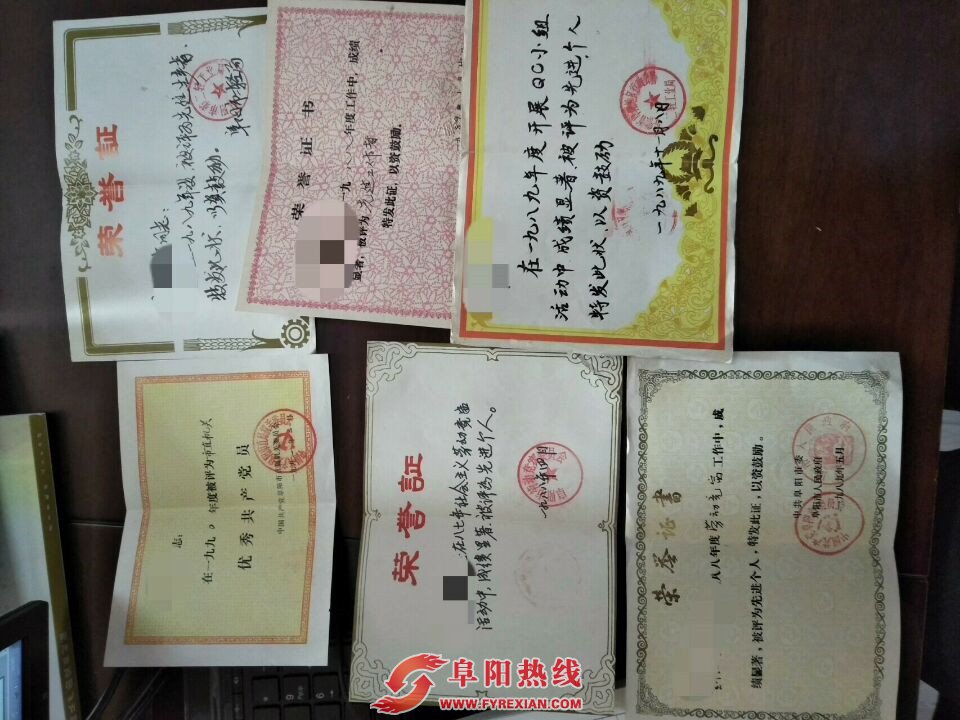 荣誉证
同志:
一九八九年被评为先进工作者,
特发此状,以资鼓励。
荣誉证书
一九八八年度工作中,成绩
显著,被评为先进工作者
特发此证,以资鼓励。
在一九八九年度开展QC小组
活动中成绩显著,被评为先进个人
特发此状,以资鼓励
一九八九年十一月八日
志:
在一九九〇年度被评为市直机关
优秀共产党员
荣誉证
在八七年社会主义劳动竞赛
活动中,成绩显著,被评为先进个人。
荣誉证书
八八年度劳动竞赛工作中,成
绩显著,被评为先进个人,特发此证,以资鼓励。
中共阜阳市委
阜阳市人民政府
阜阳热线
WWW.FYREXIAN.COM